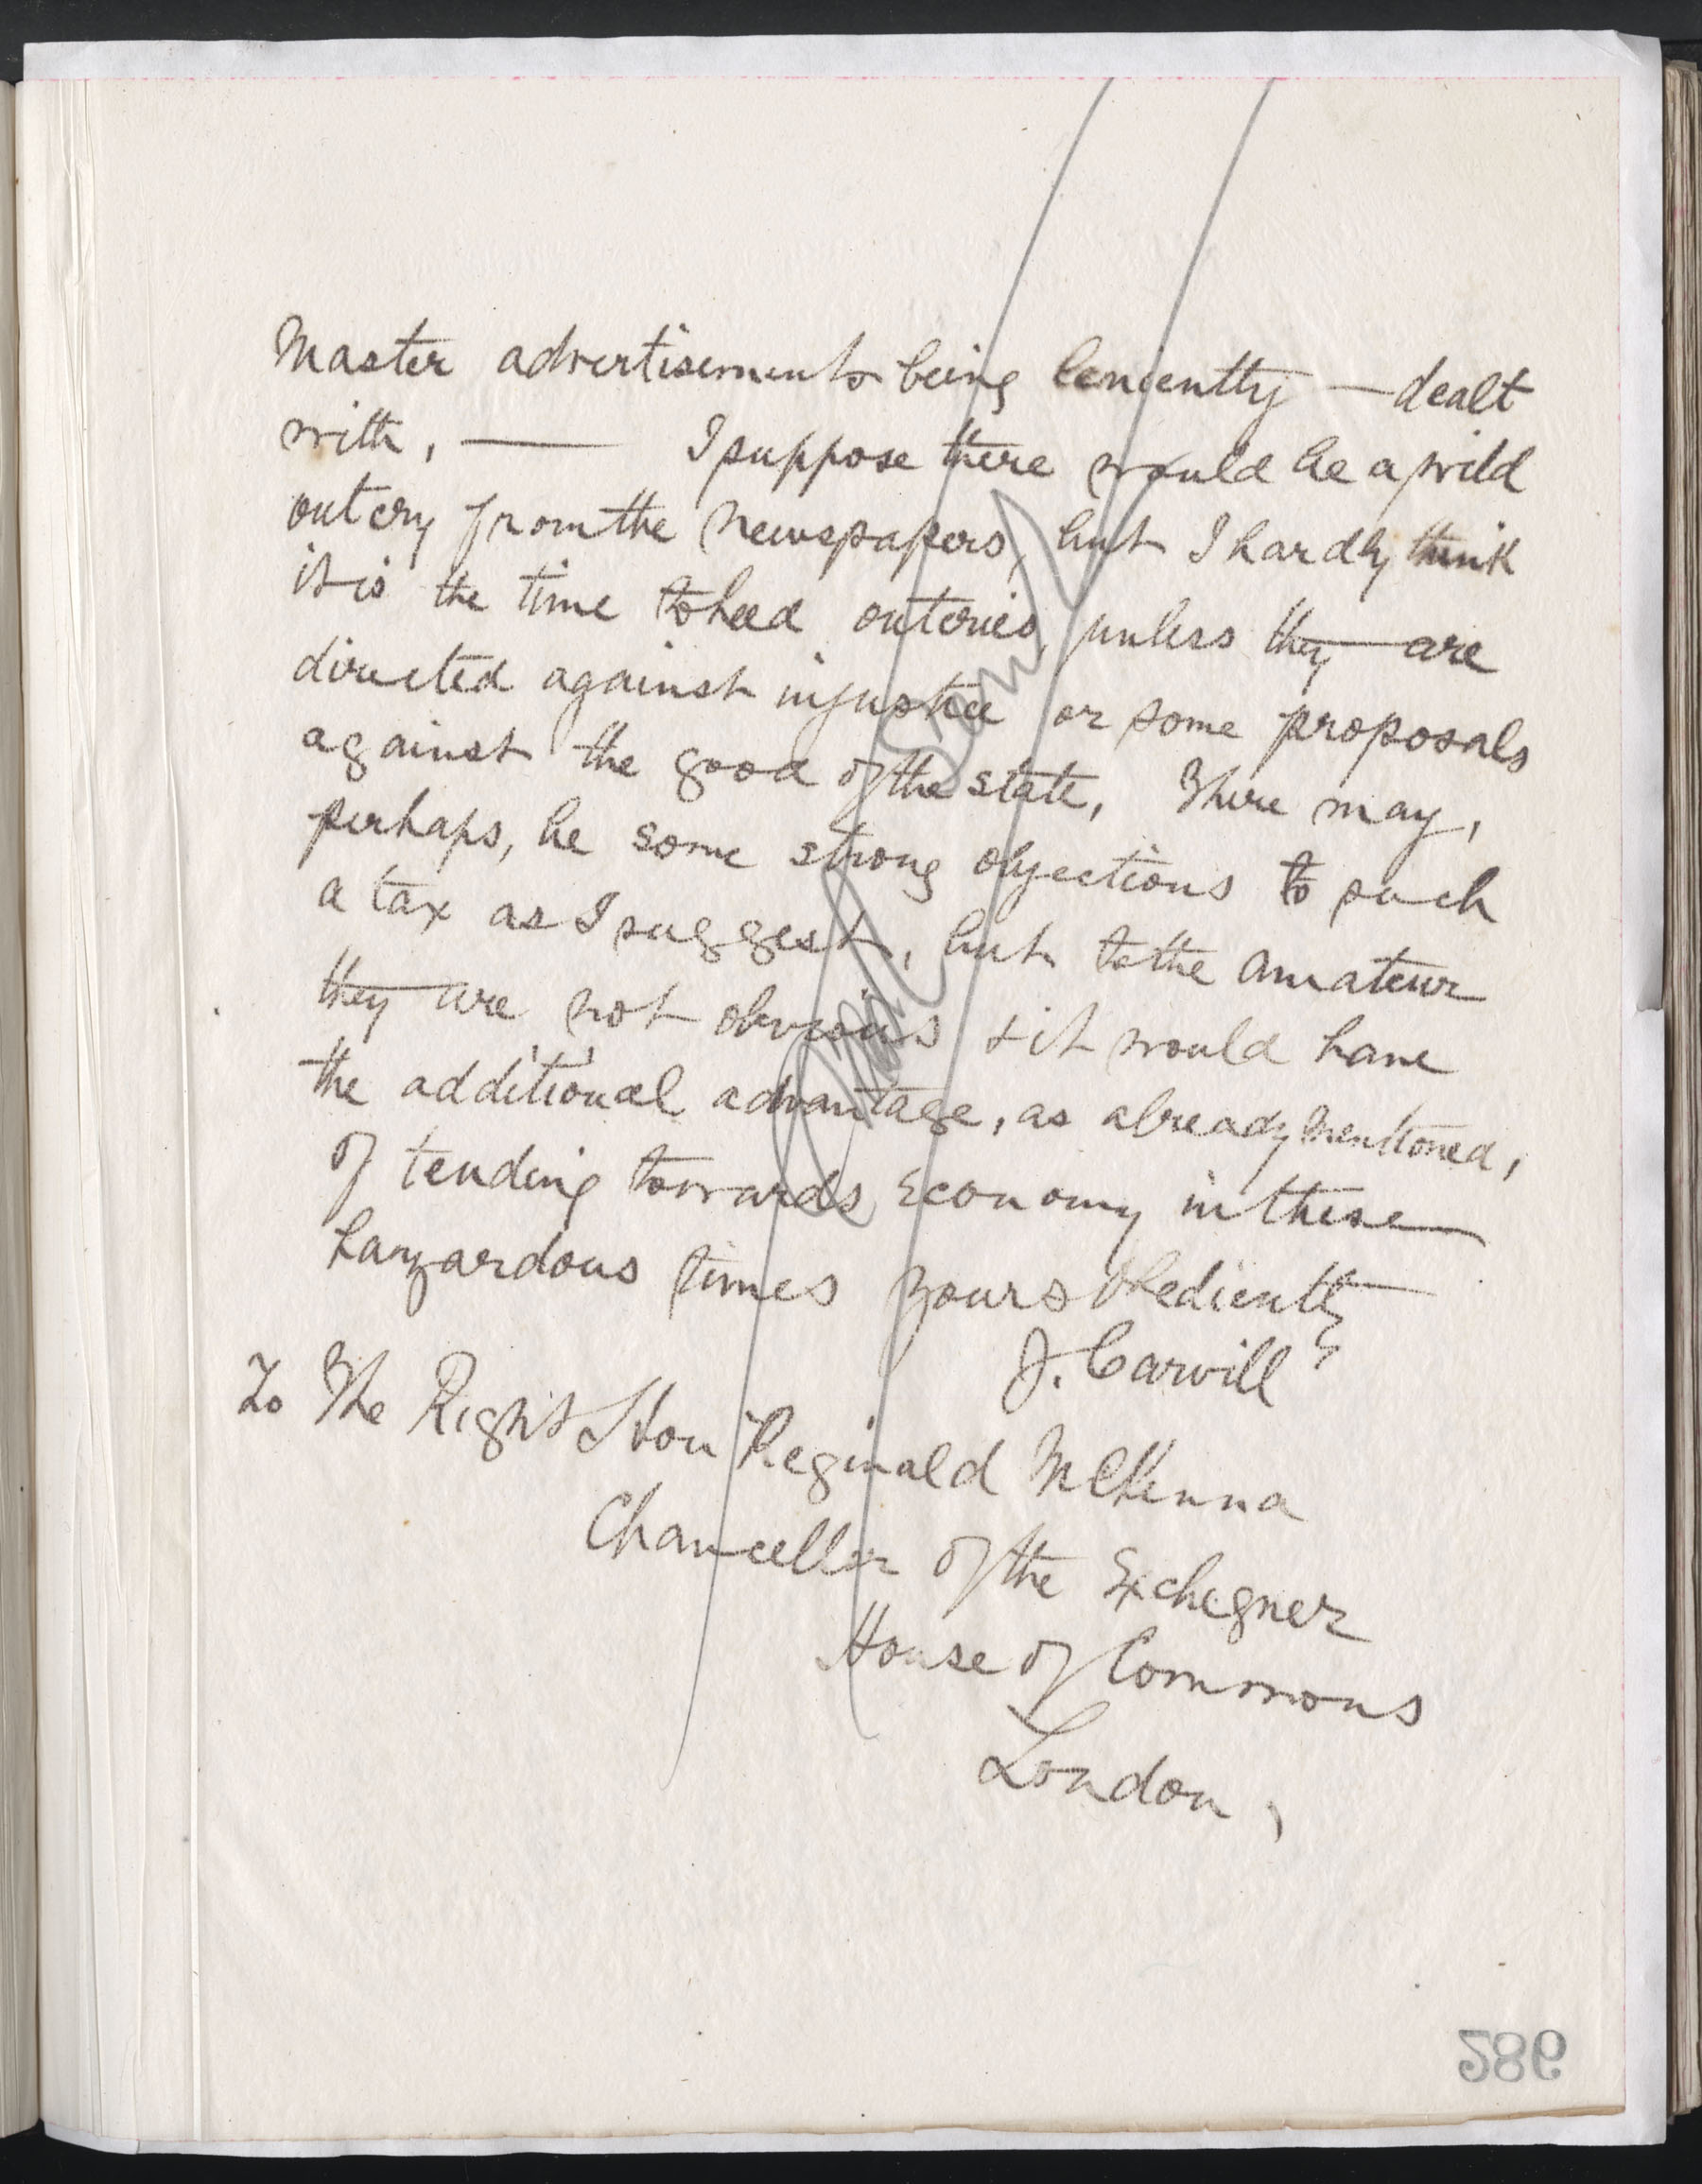 Master advertisements being leniently dealt
with, — I suppose there would be a wild
outcry from the newspapers, but I hardly think
it is the time to heed outcries, unless they are
directed against injustice or some proposals
against the good of the state, There may,
perhaps, be some strong objections to such
a tax as I suggest, but to the amateur
they are not obvious & it would have
the additional advantage, as already mentioned,
of tending towards Economy in these
hazardous times yours obediently
J. Carvill
To The Right Hon Reginald McKenna
Chancellor of the Exchequer
House of Commons
London,
286